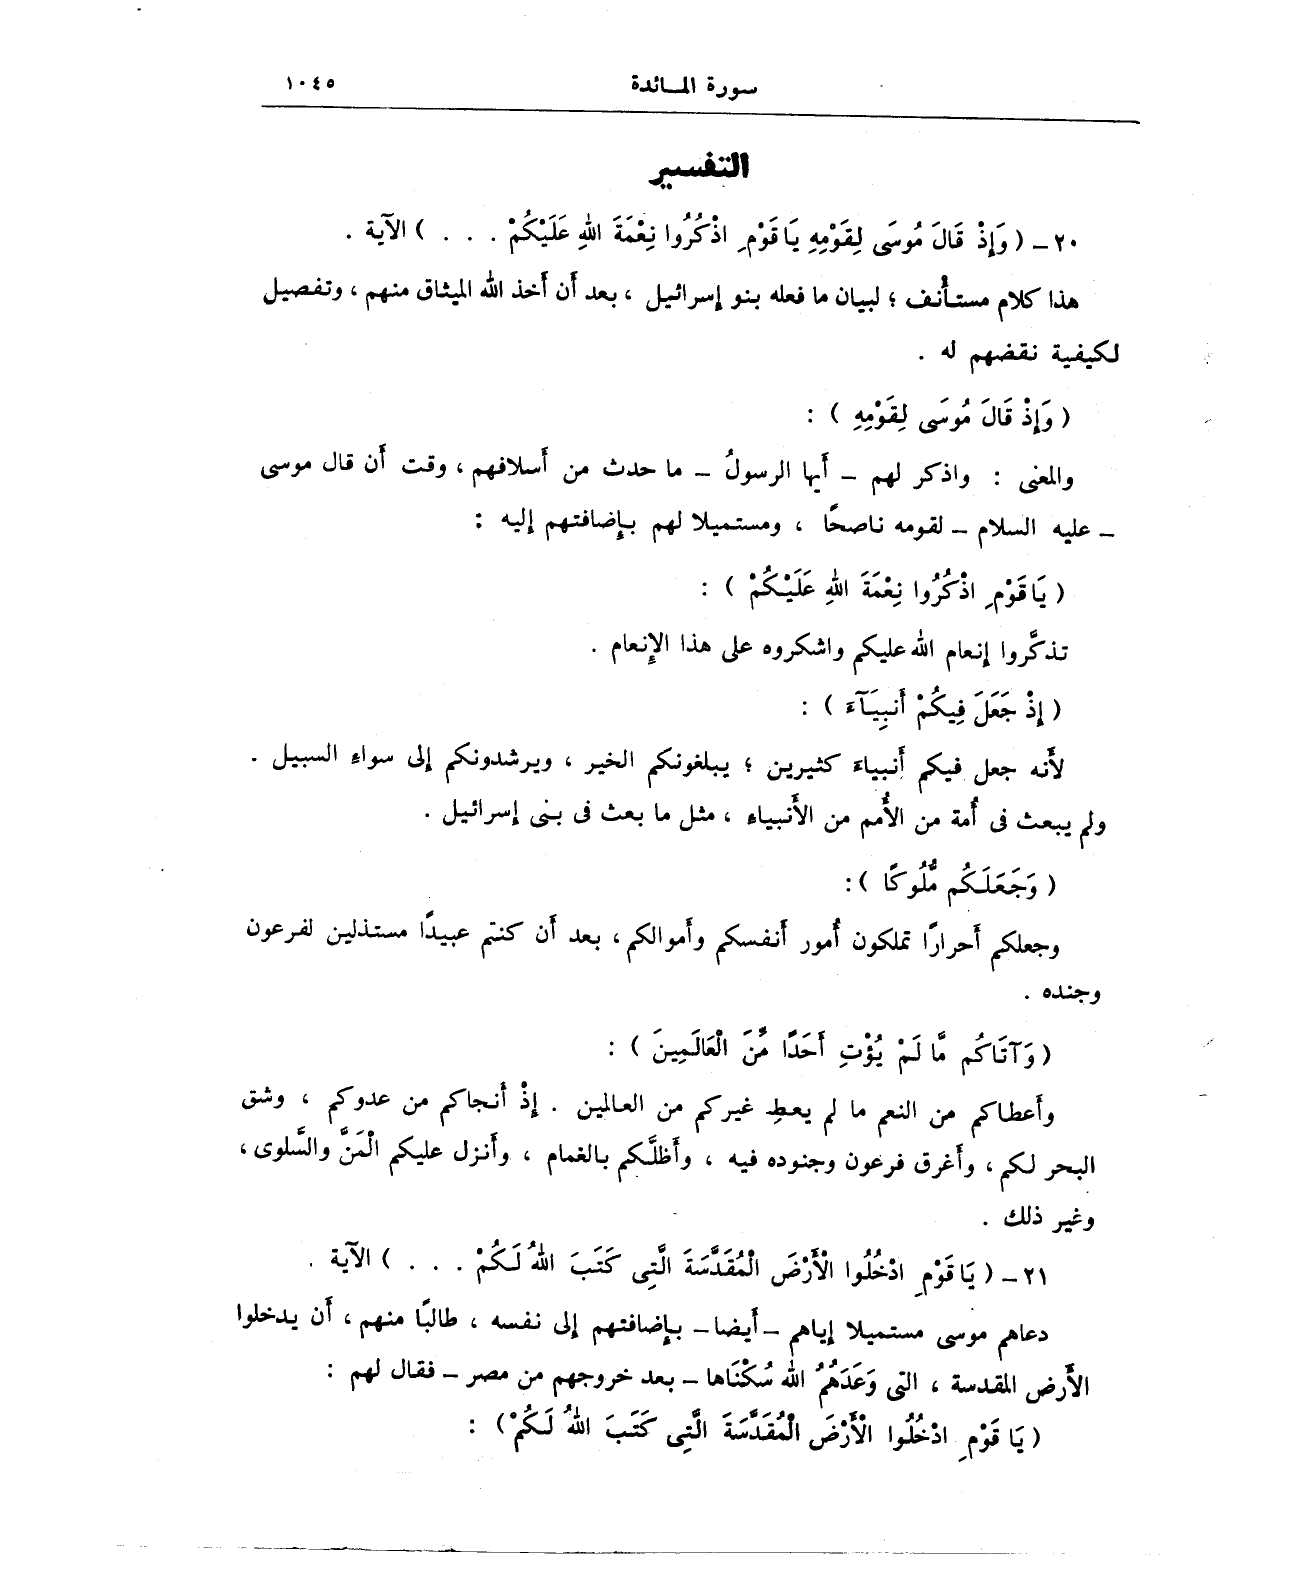 سورة المائدة ١٠٤٥
التفسير
٢٠ – ( وَإِذْ قَالَ مُوسَى لِقَوْمِهِ يَا قَوْمِ اذْكُرُوا نِعْمَةَ اللهِ عَلَيْكُمْ . . . ) الآية .
هذا كلام مستأْنف ؛ لبيان ما فعله بنو إسرائيل ، بعد أن أخذ الله الميثاق منهم ، وتفصيل
لكيفية نقضهم له .
( وَإِذْ قَالَ مُوسَى لِقَوْمِهِ ) :
والمعنى : واذكر لهم – أيها الرسولُ – ما حدث من أسلافهم ، وقت أن قال موسى
– عليه السلام – لقومه ناصحًا ، ومستميلا لهم بإضافتهم إليه :
( يَا قَوْمِ اذْكُرُوا نِعْمَةَ اللهِ عَلَيْكُمْ ) :
تذكَّروا إنعام الله عليكم واشكروه على هذا الإنعام .
( إِذْ جَعَلَ فِيكُمْ أَنبِيَآءَ ) :
لأنه جعل فيكم أنبياءَ كثيرين ؛ يبلغونكم الخير ، ويرشدونكم إلى سواءِ السبيل .
ولم يبعث فى أُمة من الأُمم من الأنبياءِ ، مثل ما بعث فى بنى إسرائيل .
( وَجَعَلَكُم مُّلُوكًا ) :
وجعلكم أحرارًا تملكون أُمور أنفسكم وأموالكم ، بعد أن كنتم عبيدًا مستذلين لفرعون
وجنده .
( وَآتَاكُم مَّا لَمْ يُؤْتِ أَحَدًا مِّنَ الْعَالَمِينَ ) :
وأعطاكم من النعم ما لم يعطِ غيركم من العالمين . إذْ أنجاكم من عدوكم ، وشق
البحر لكم ، وأغرق فرعون وجنوده فيه ، وأظلَّكم بالغمام ، وأنزل عليكم الْمَنَّ والسَّلوى ،
وغير ذلك .
٢١ – ( يَا قَوْمِ ادْخُلُوا الْأَرْضَ الْمُقَدَّسَةَ الَّتِى كَتَبَ اللهُ لَكُمْ . . . ) الآية .
دعاهم موسى مستميلا إياهم – أيضا – بإضافتهم إلى نفسه ، طالبًا منهم ، أن يدخلوا
الأرض المقدسة ، التى وَعَدَهُمُ الله سُكْنَاها – بعد خروجهم من مصر – فقال لهم :
( يَا قَوْمِ ادْخُلُوا الْأَرْضَ الْمُقَدَّسَةَ الَّتِى كَتَبَ اللهُ لَكُمْ ) :